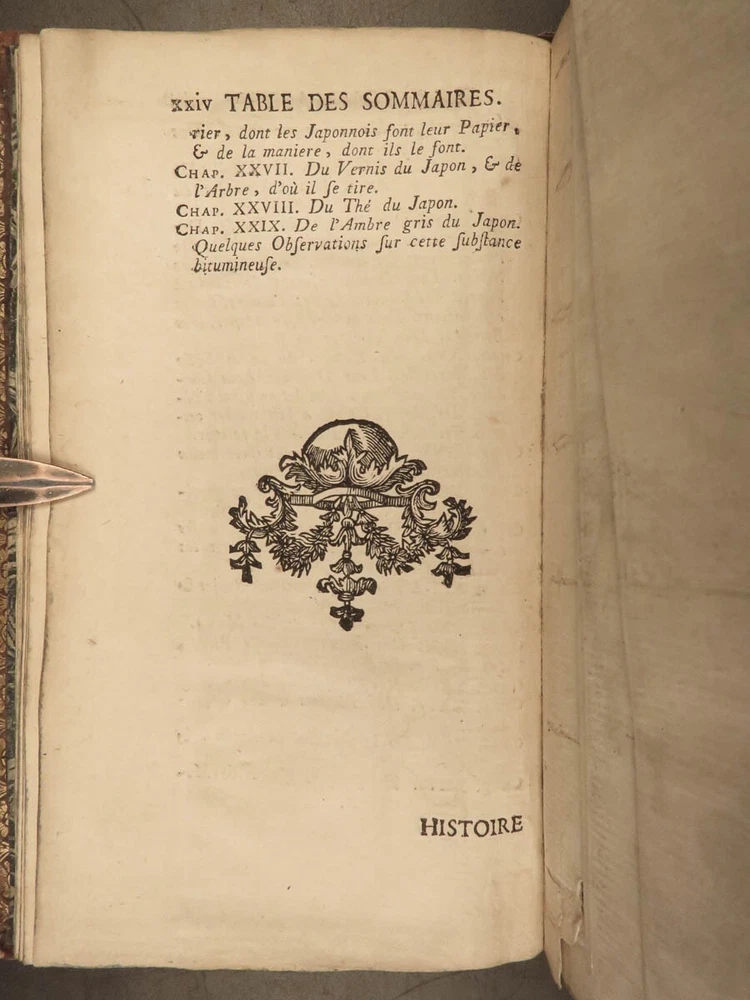 xxiv TABLE DES SOMMAIRES.
rier, dont les Japonnois ſont leur Papier,
& de la maniere, dont ils le font.
CHAP. XXVII. Du Vernis du Japon, & de
l'Arbre, d'où il ſe tire.
CHAP. XXVIII. Du Thé du Japon.
CHAP. XXIX. De l'Ambre gris du Japon.
Quelques Obſervations ſur cette ſubſtance
bitumineuſe.
HISTOIRE